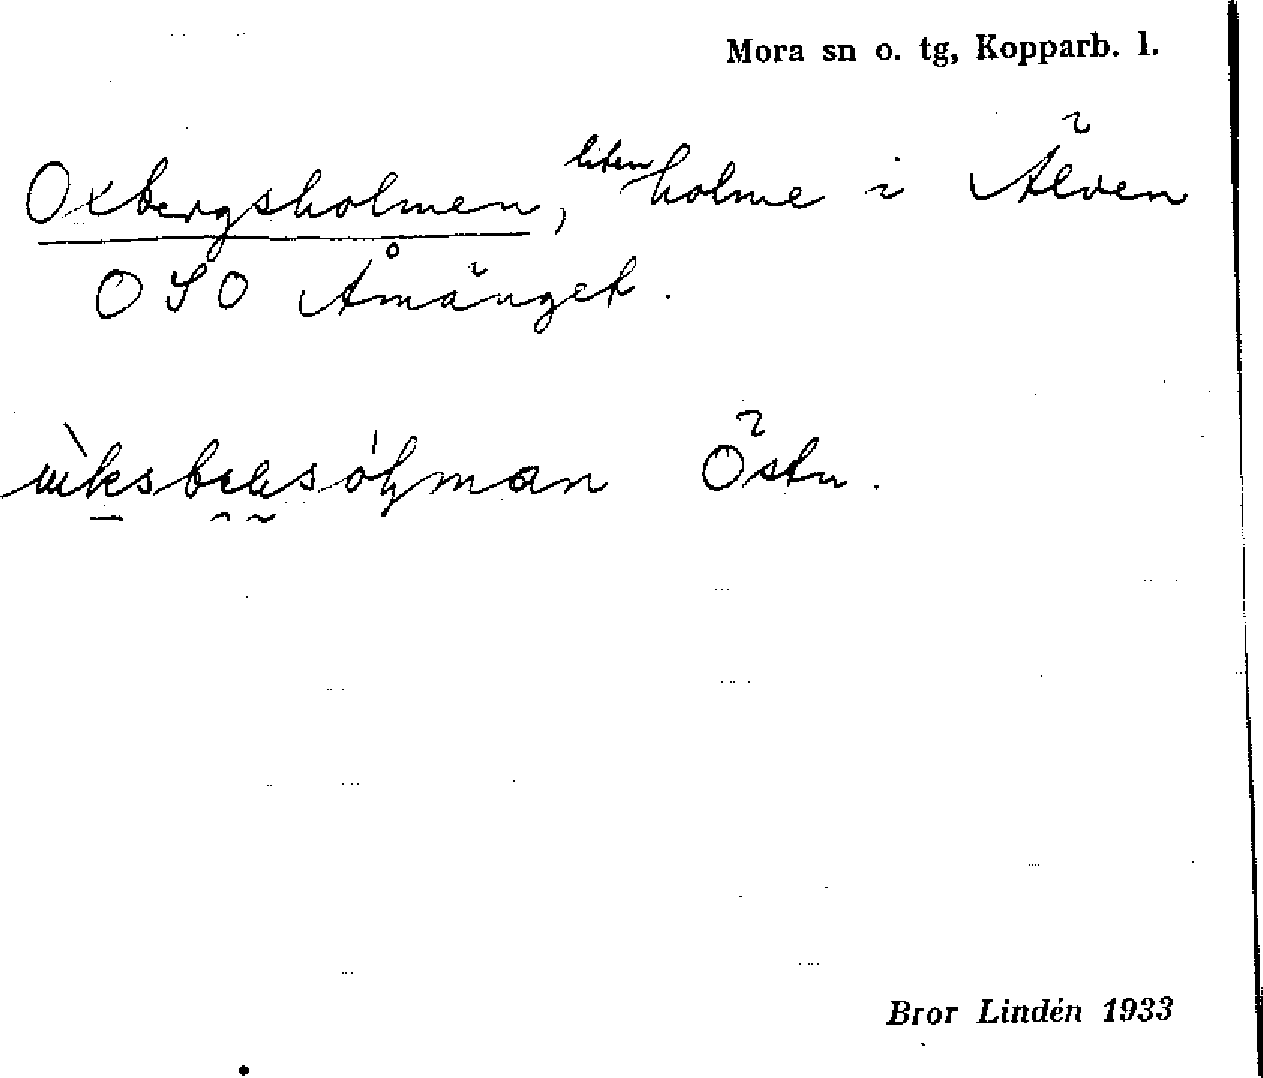 Mora sn o. tg, Kopparb. l.
Oxbergsholmen, liten holme i Älven
OSO Åmänget.
Östn.
Bror Lindén 1933